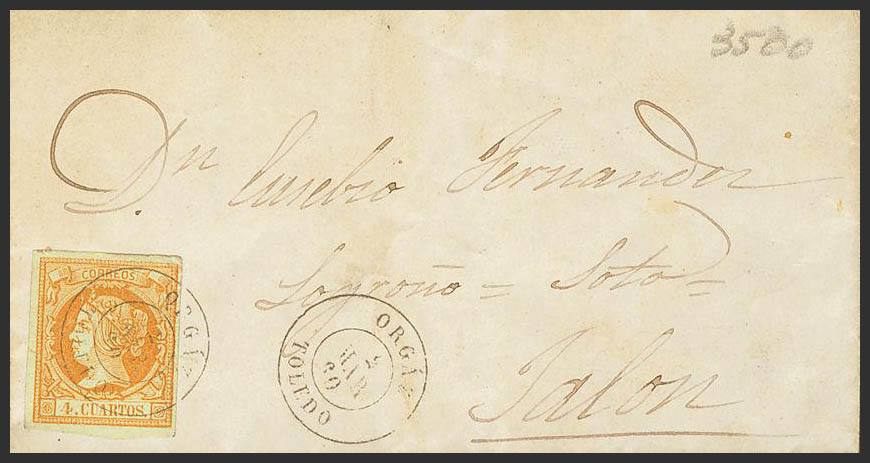 3500
Dn Eusebio Fernandez
Logroño = Soto =
Jalon
CORREOS
4. CUARTOS.
ORGÁZ
TOLEDO
2
MAR
60
ORGÁZ